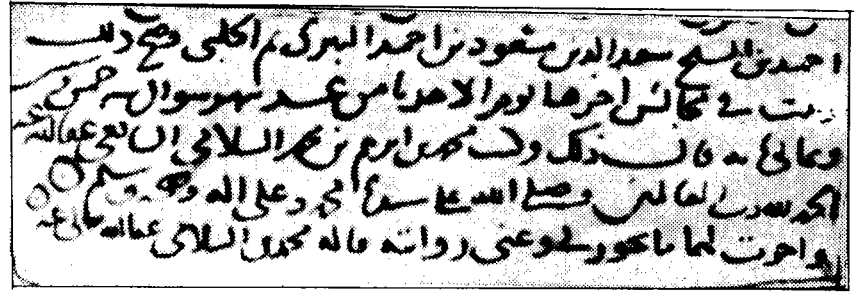 احمد بن الشيخ سعد الدين مسعود بن احمد البدرى ثم الحلبى وصح ذلك
وثبت في مجالس اخرها يوم الاحد ثامن عشر شهر شوال سنة خمس
وثمانمائة قال ذلك وكتب محمد بن ابرهيم بن محمد السلامي الشافعي عفا الله عنه
الحمد لله رب العالمين وصلى الله على سيدنا محمد وعلى اله وصحبه وسلم
واجزت لهما ما يجوز لي وعني روايته قاله محمد السلامي عفا الله تعالى عنه